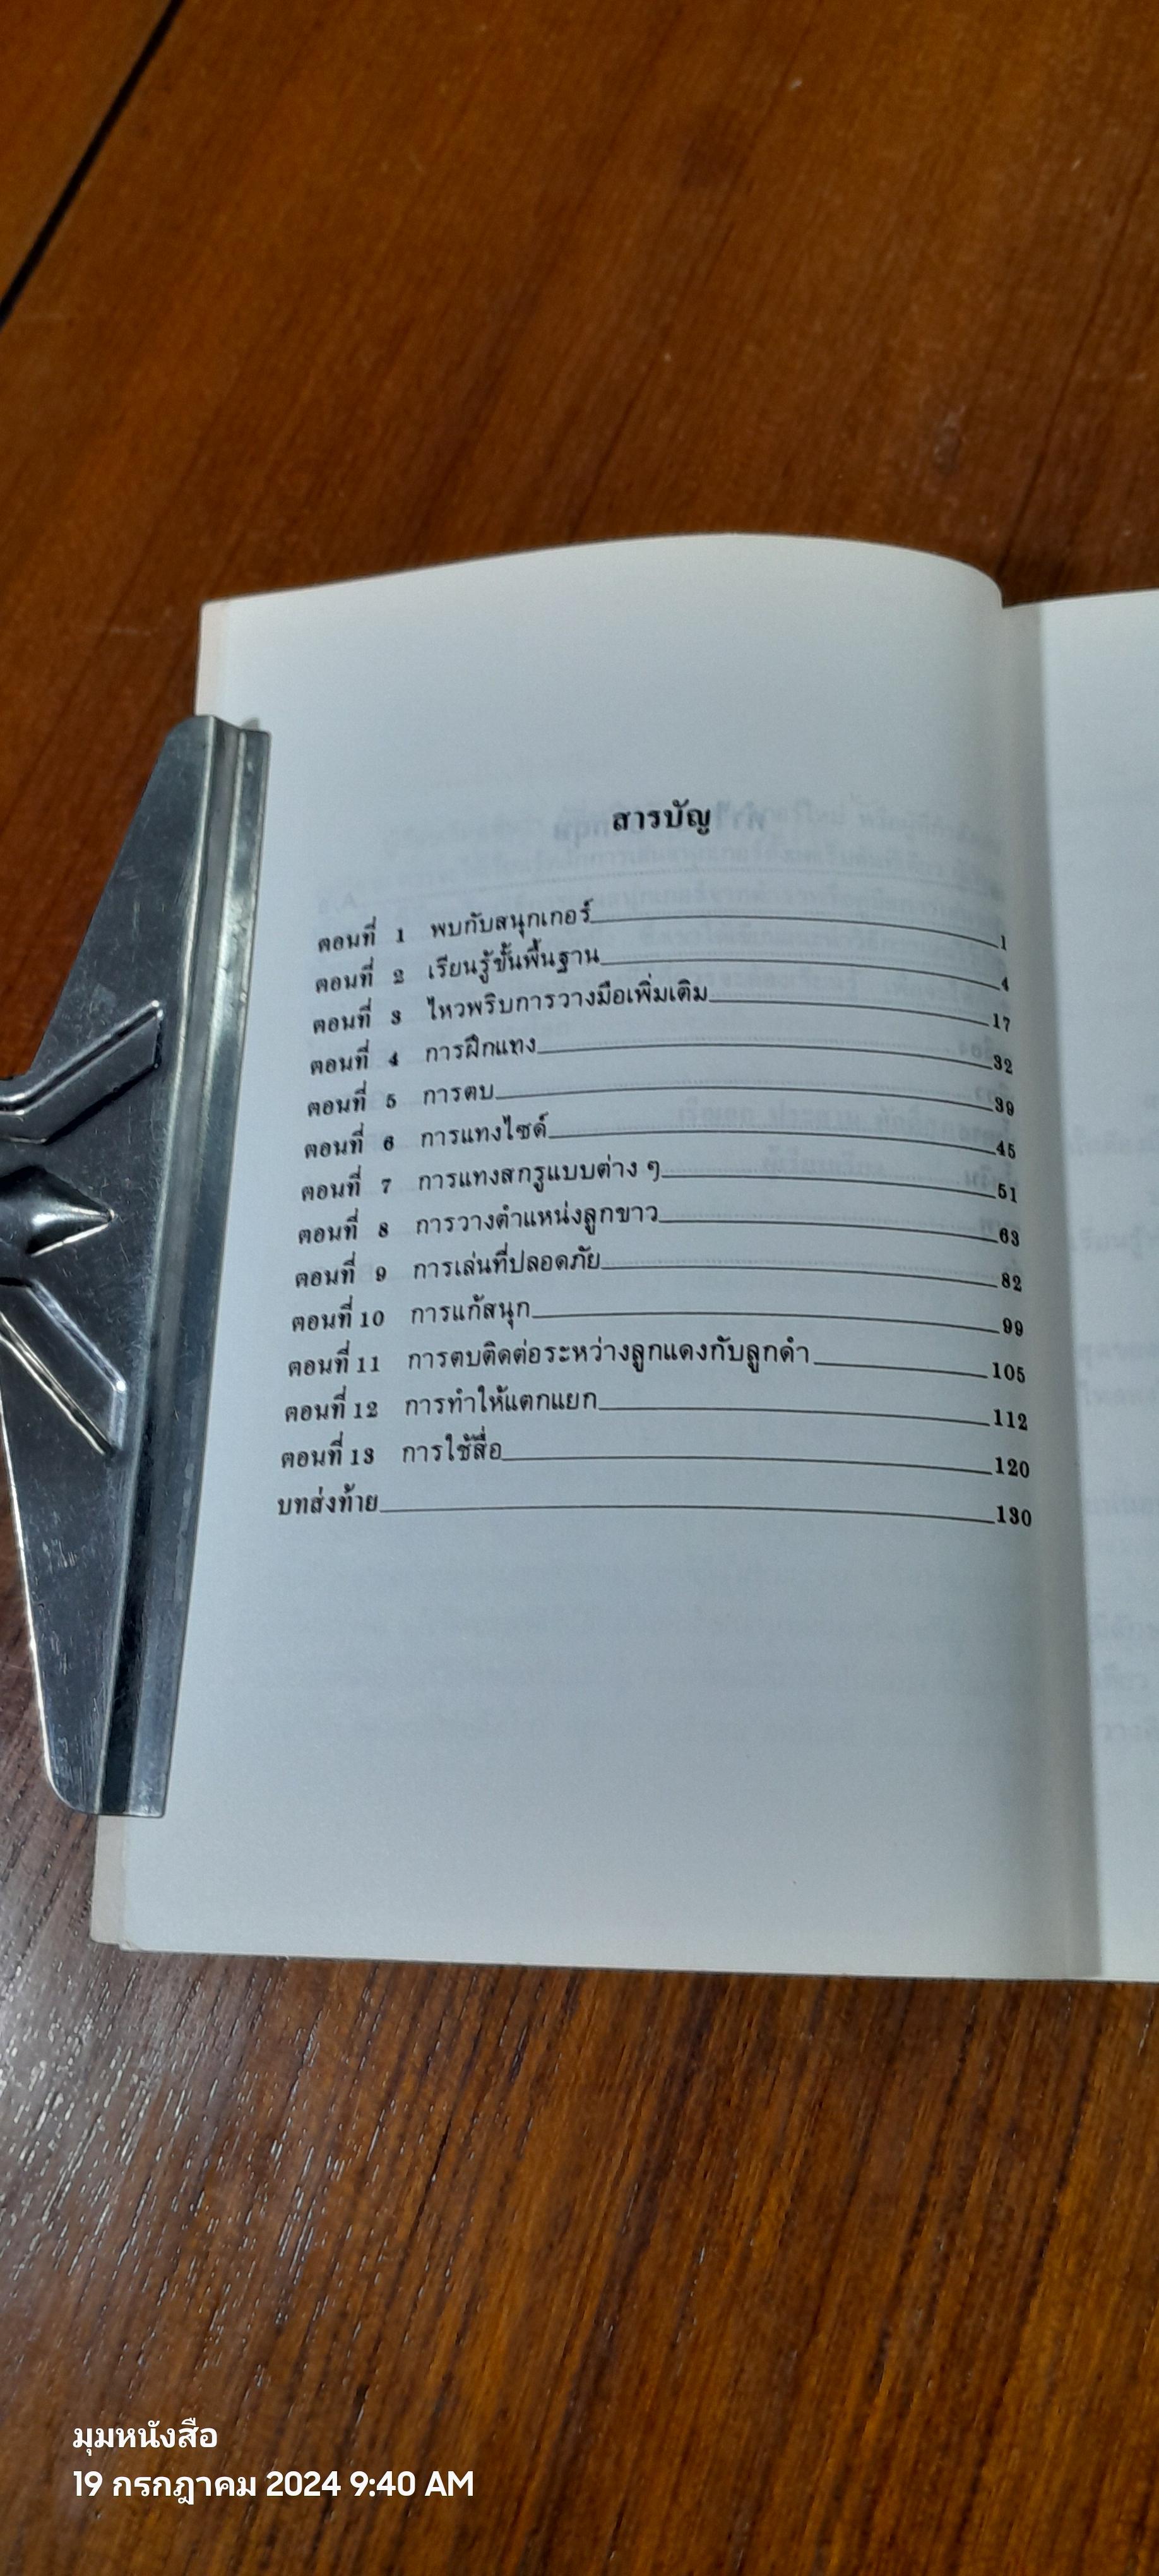 สารบัญ
ตอนที่ 1 พบกับสนุกเกอร์ 1
ตอนที่ 2 เรียนรู้ขั้นพื้นฐาน 4
ตอนที่ 3 ไหวพริบการวางมือเพิ่มเติม 17
ตอนที่ 4 การฝึกแทง 32
ตอนที่ 5 การตบ 39
ตอนที่ 6 การแทงไซด์ 45
ตอนที่ 7 การแทงสกรูแบบต่าง ๆ 51
ตอนที่ 8 การวางตำแหน่งลูกขาว 63
ตอนที่ 9 การเล่นที่ปลอดภัย 82
ตอนที่ 10 การแก้สนุก 99
ตอนที่ 11 การตบติดต่อระหว่างลูกแดงกับลูกดำ 105
ตอนที่ 12 การทำให้แตกแยก 112
ตอนที่ 13 การใช้สื่อ 120
บทส่งท้าย 130
มุมหนังสือ
19 กรกฎาคม 2024 9:40 AM